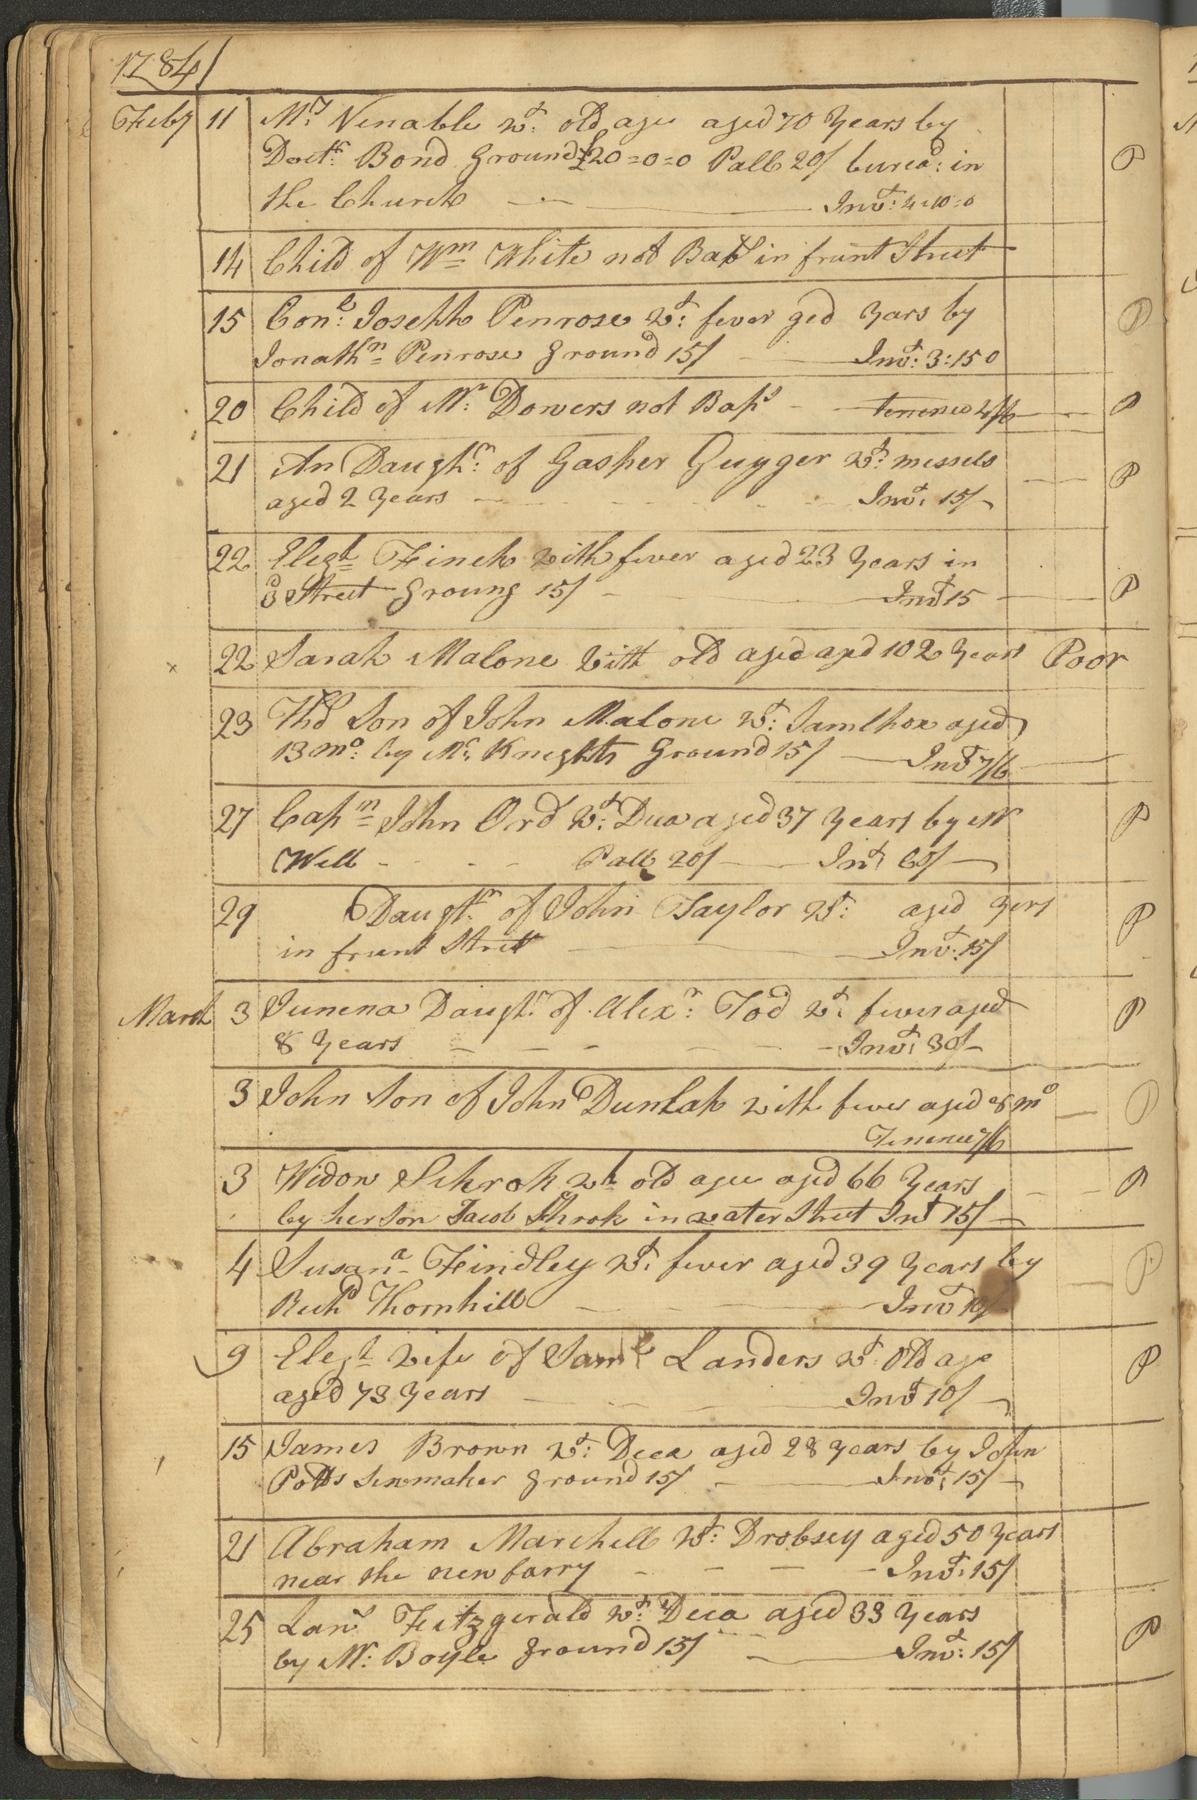 1784
Feby 11 Mrs Venable wt: old age aged 70 Years by
Doctr Bond Ground £20=0=0 Pall 20/ buread: in P
the Church Invt: 4:10:0
14 Child of Wm White not Bapt in frunt Street
15 Conl: Joseph Penrose wt: fever ged Yars by P
Jonathn Penrose Ground 15/ Invt: 3:15 0
20 Child of Mr: Dowers not Bapt tenence 4/6 P
21 An Daughr: of Gasper Guyger wt: messels
aged 2 Years Invt: 15/ P
22 Elezt Finck with fever aged 23 Years in
3d Street Groung 15/ Invt 15 P
22 Sarah Malone with old aged aged 102 Years Poor
23 Thos Son of John Malone wt: Samlhox aged
13 mo: by Mr Knights Ground 15/ Invt 7/6
27 Capn John Ord wt: Dca aged 37 Years by Mr P
Will Pall 20/ Int 65/
29 Daughr of John Taylor wt: aged Yers P
in frunt Street Invt: 15/
March 3 Junena Daught: of Alexr: Tod wt: fever aged P
8 Years Invt: 30/
3 John Son of John Dunlap with fever aged 8 mo P
Tenence 7/6
3 Widow Schrok wt old age aged 66 Years P
by her Son Jacob Shrok in water Street Invt 15/
4 Susana Findley wt: fever aged 39 Years by P
Richd Thornhill Invt 10/
9 Elezt wife of Saml Landers wt: Old age P
aged 73 Years Invt 10/
15 James Brown wt: Deca aged 28 years by John
Potts Ground 15/ Invt: 15/
21 Abraham Marchell wt: Drobsey aged 50 Years
near the new farry Invt: 15/
25 Lanc Fitzgerald wt: Deca aged 33 Years P
by Mr: Boyle Ground 15/ Invt: 15/